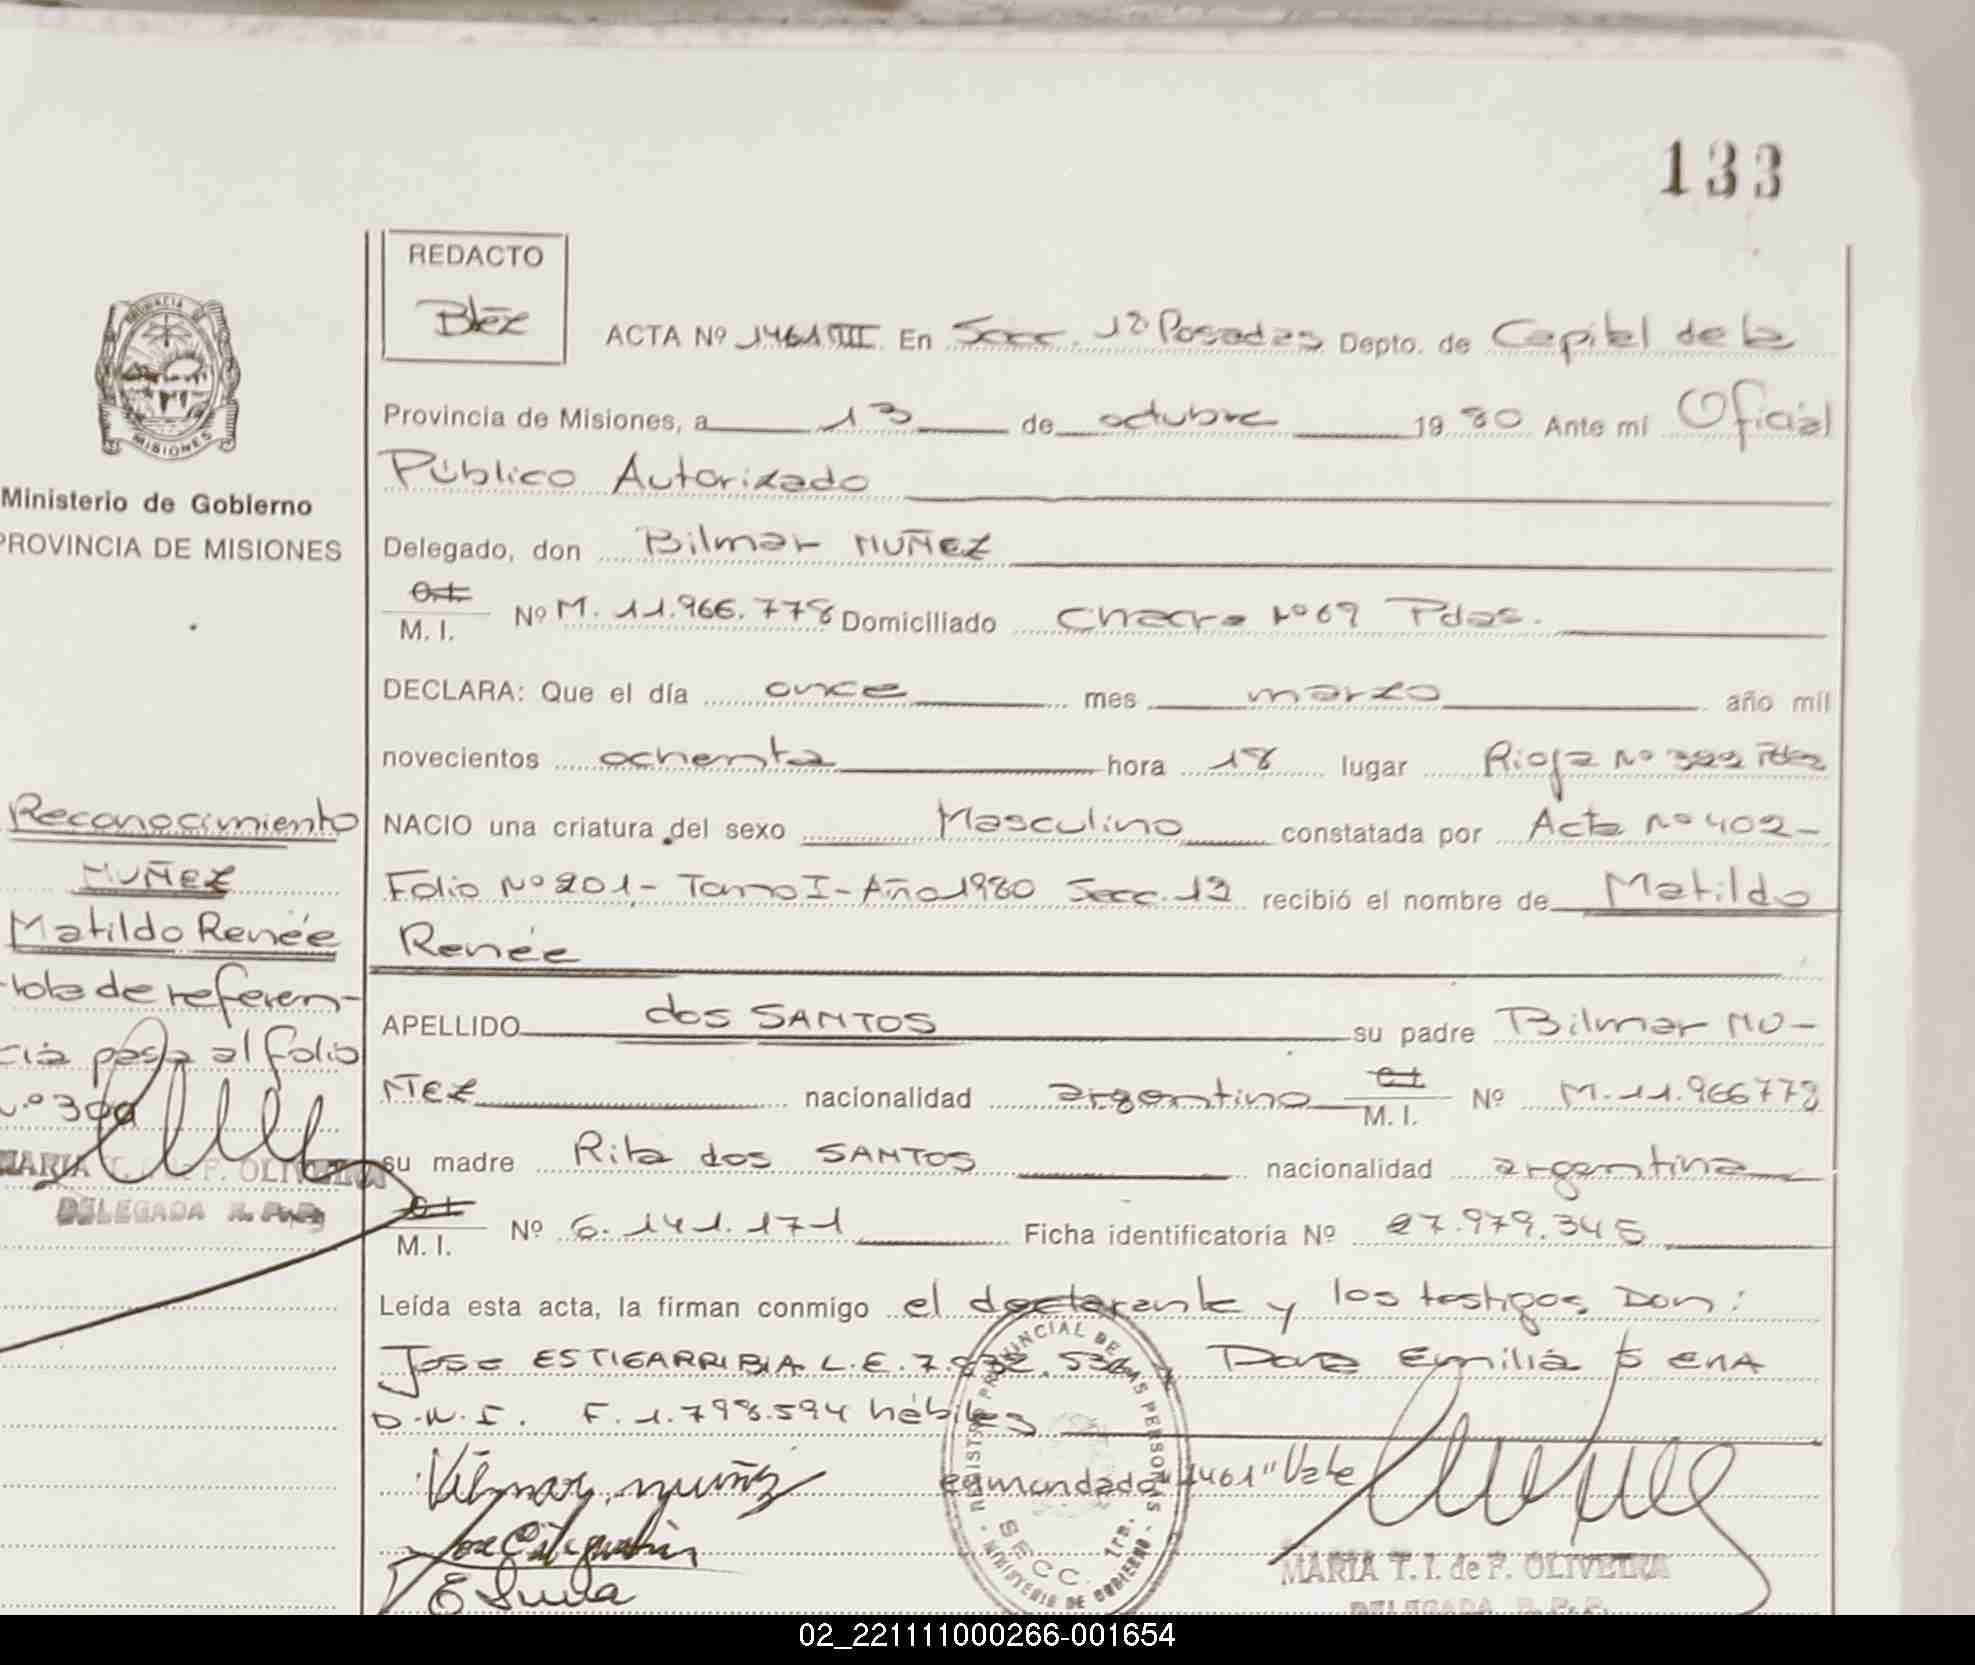 133
REDACTO
ACTA Nº 1461 III En Secc. 1ª Posadas Depto. de Capital de la
Provincia de Misiones, a 13 de octubre 1980 Ante mí Oficial
Público Autorizado
PROVINCIA DE
MISIONES
Ministerio de Gobierno
PROVINCIA DE MISIONES
Delegado, don Bilmar NUÑEZ
M. I. Nº M. 11.966.778 Domiciliado Chacra Nº 69 Pdas.
DECLARA: Que el día once mes marzo año mil
novecientos ochenta hora 18 lugar Rioja Nº
NACIO una criatura del sexo Masculino constatada por Acta Nº 402-
Folio Nº 201- Tomo I- Año 1980 Secc. 1ª recibió el nombre de Matildo
Renée
APELLIDO dos SANTOS su padre Bilmar NU-
ÑEZ nacionalidad argentino M. I. Nº M. 11.966778
su madre Rita dos SANTOS nacionalidad argentina
M. I. Nº 6.141.171 Ficha identificatoria Nº 27.979.345
Leída esta acta, la firman conmigo el declarante y los testigos Don:
Jose ESTIGARRIBIA L.E. 7. Emilia
D.N.I. F. 1.798.594 hábiles
enmendado "1461" Vale
Reconocimiento
NUÑEZ
Matildo Renée
Nota de referen-
cia pasa al folio
MARIA T. I. de P. OLIVEIRA
DELEGADA R. P. P.
REGISTRO PROVINCIAL DE LAS PERSONAS
SECC. 1ra.
MINISTERIO DE GOBIERNO
MARIA T. I. de P. OLIVEIRA
DELEGADA R. P. P.
02_221111000266-001654